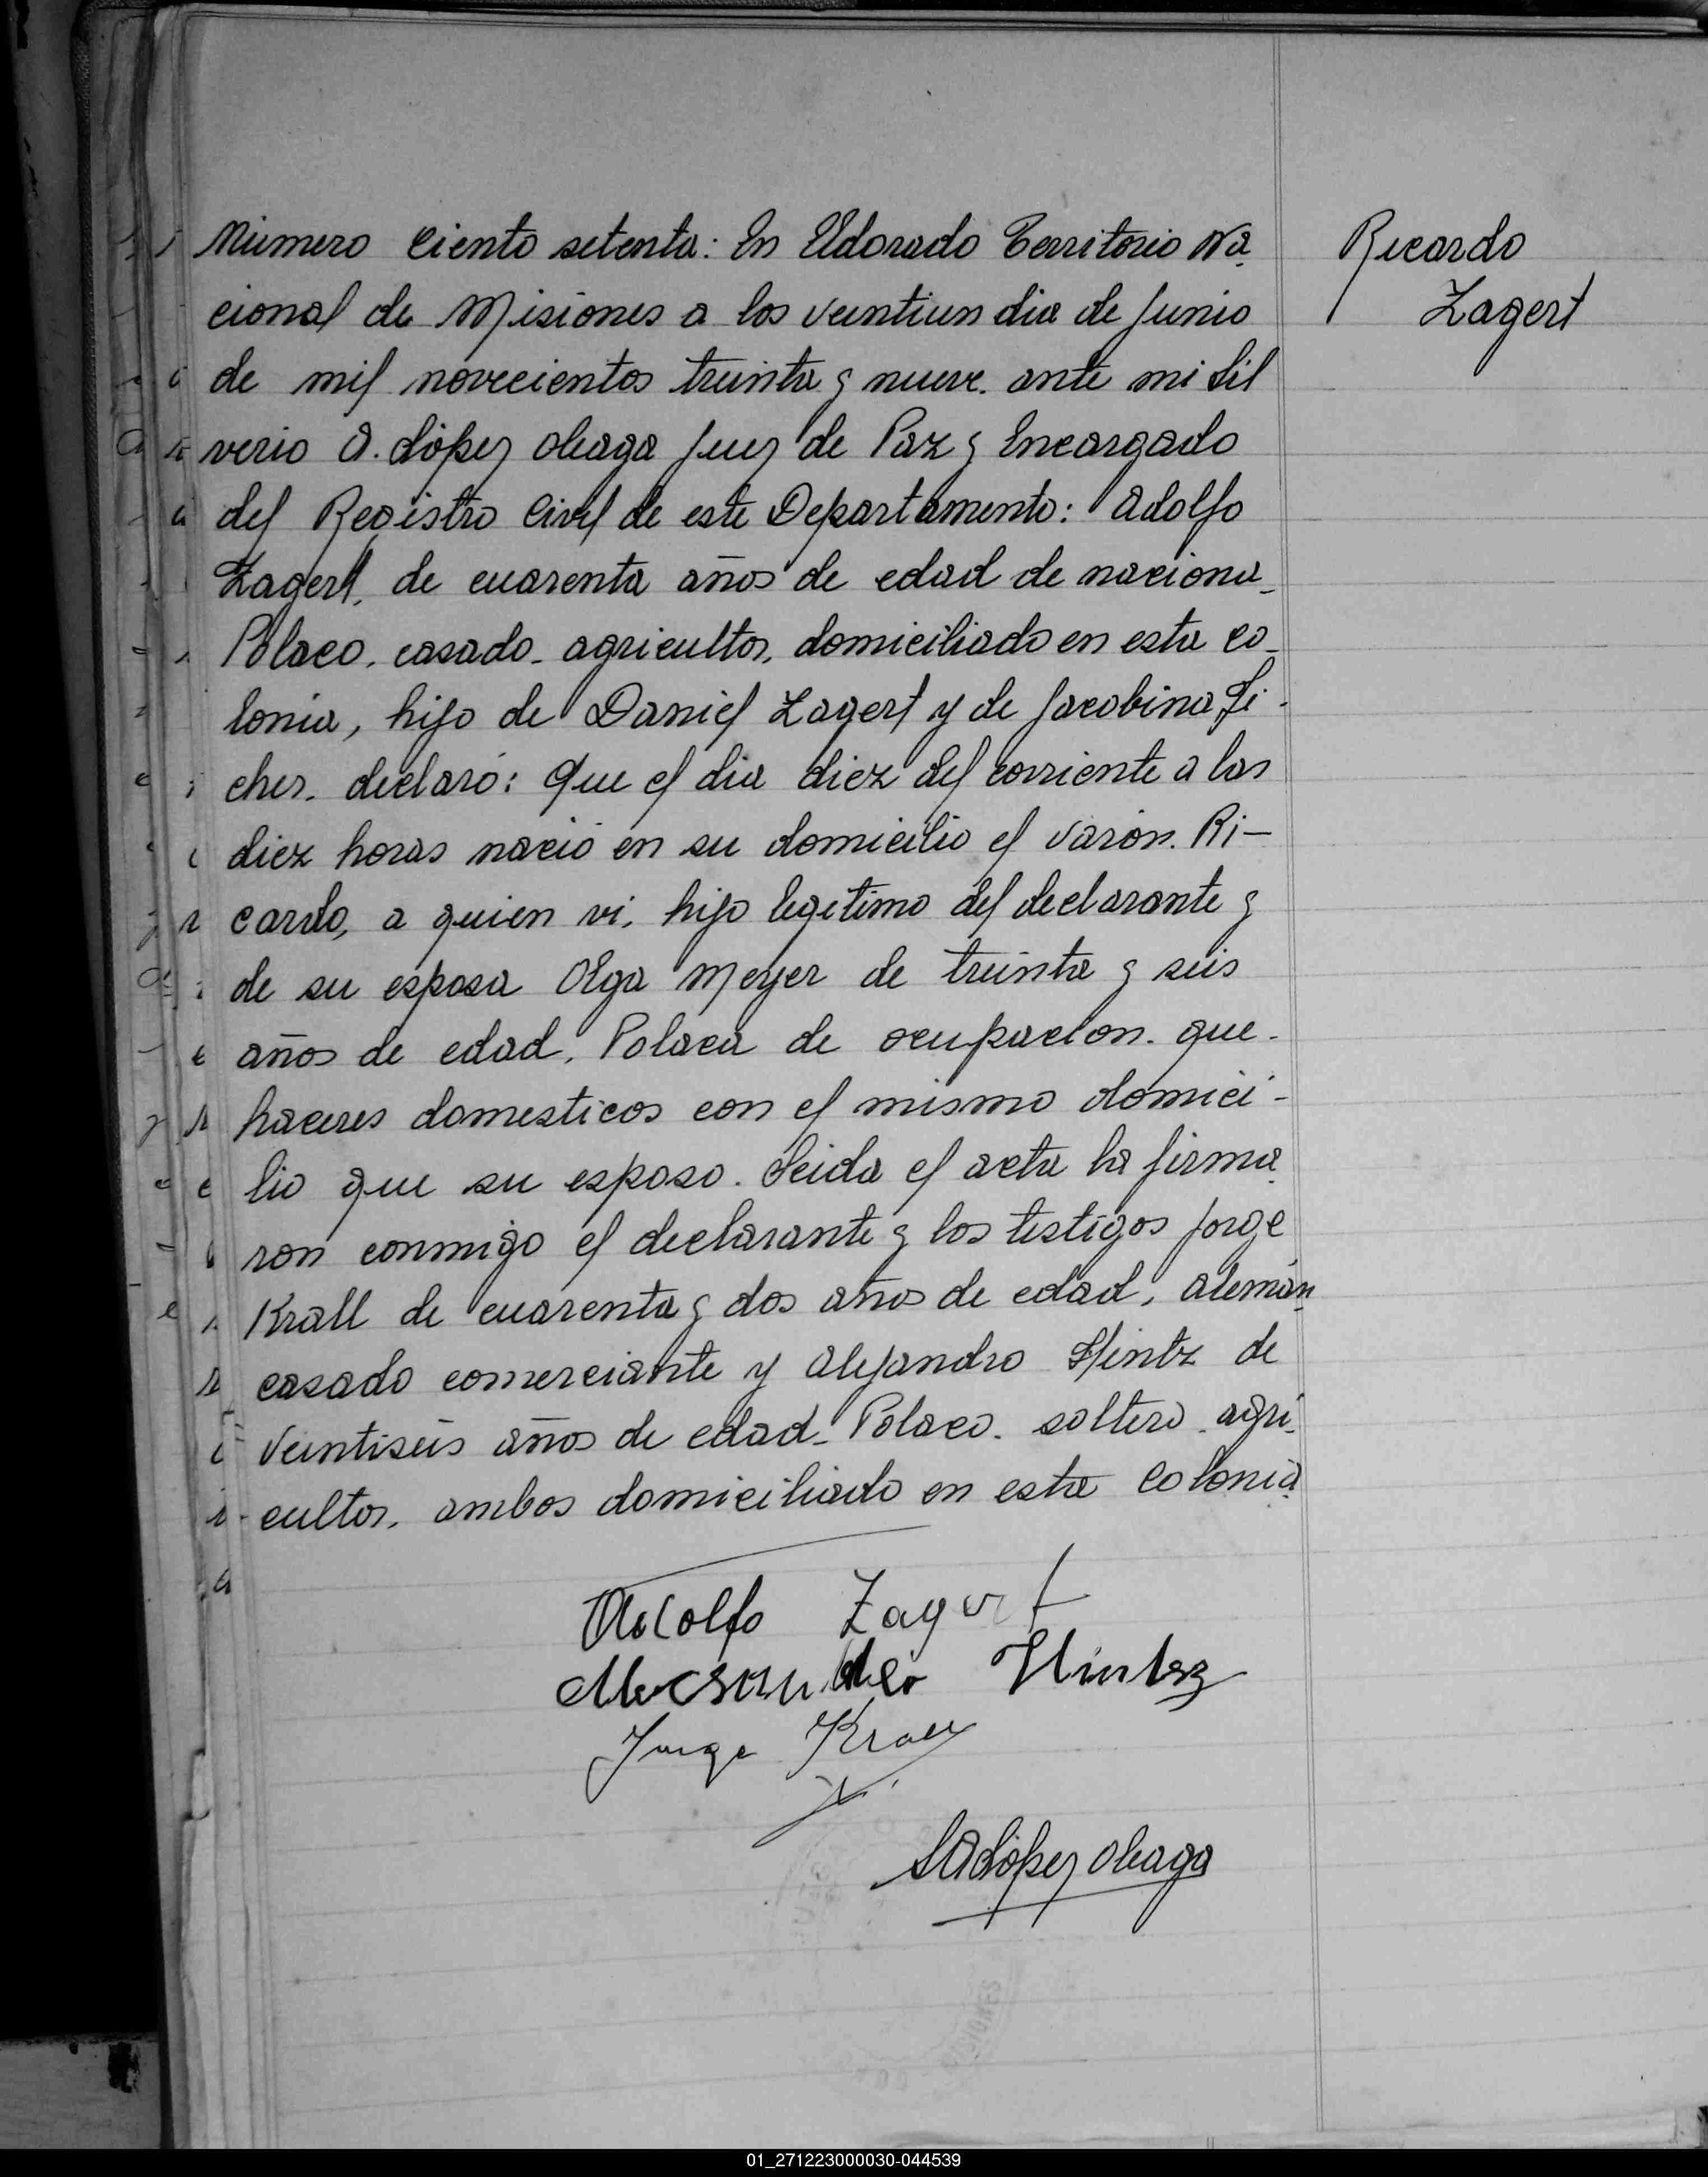 Número Ciento setenta: En Eldorado Territorio Na-
cional de Misiones a los veintiun dia de Junio
de mil novecientos treinta y nueve. ante mi Sil
verio A. López Oleaga Juez de Paz y Encargado
del Registro Civil de este Departamento: Adolfo
Zagert, de cuarenta años de edad de naciona-
Polaco, casado- agricultor, domiciliado en esta co-
lonia, hijo de Daniel Zagert y de Jacobina Fi-
cher. declaró: Que el dia diez del corriente a las
diez horas nació en su domicilio el varón. Ri-
cardo, a quien vi, hijo legitimo del declarante y
de su esposa Olga Meyer de treinta y seis
años de edad, Polaca de ocupacion. que-
haceres domesticos con el mismo domici-
lio que su esposo. Leida el acta la firma-
ron conmigo el declarante y los testigos Jorge
Krall de cuarenta y dos años de edad, alemán
casado comerciante y Alejandro Hintz de
veintiseis años de edad- Polaco- soltero- agri-
cultor, ambos domiciliado en esta Colonia
Ricardo
Zagert
Adolfo Zagert
Hintz
Jorge Krall
S A López Oleaga
MISIONES
01_271223000030-044539